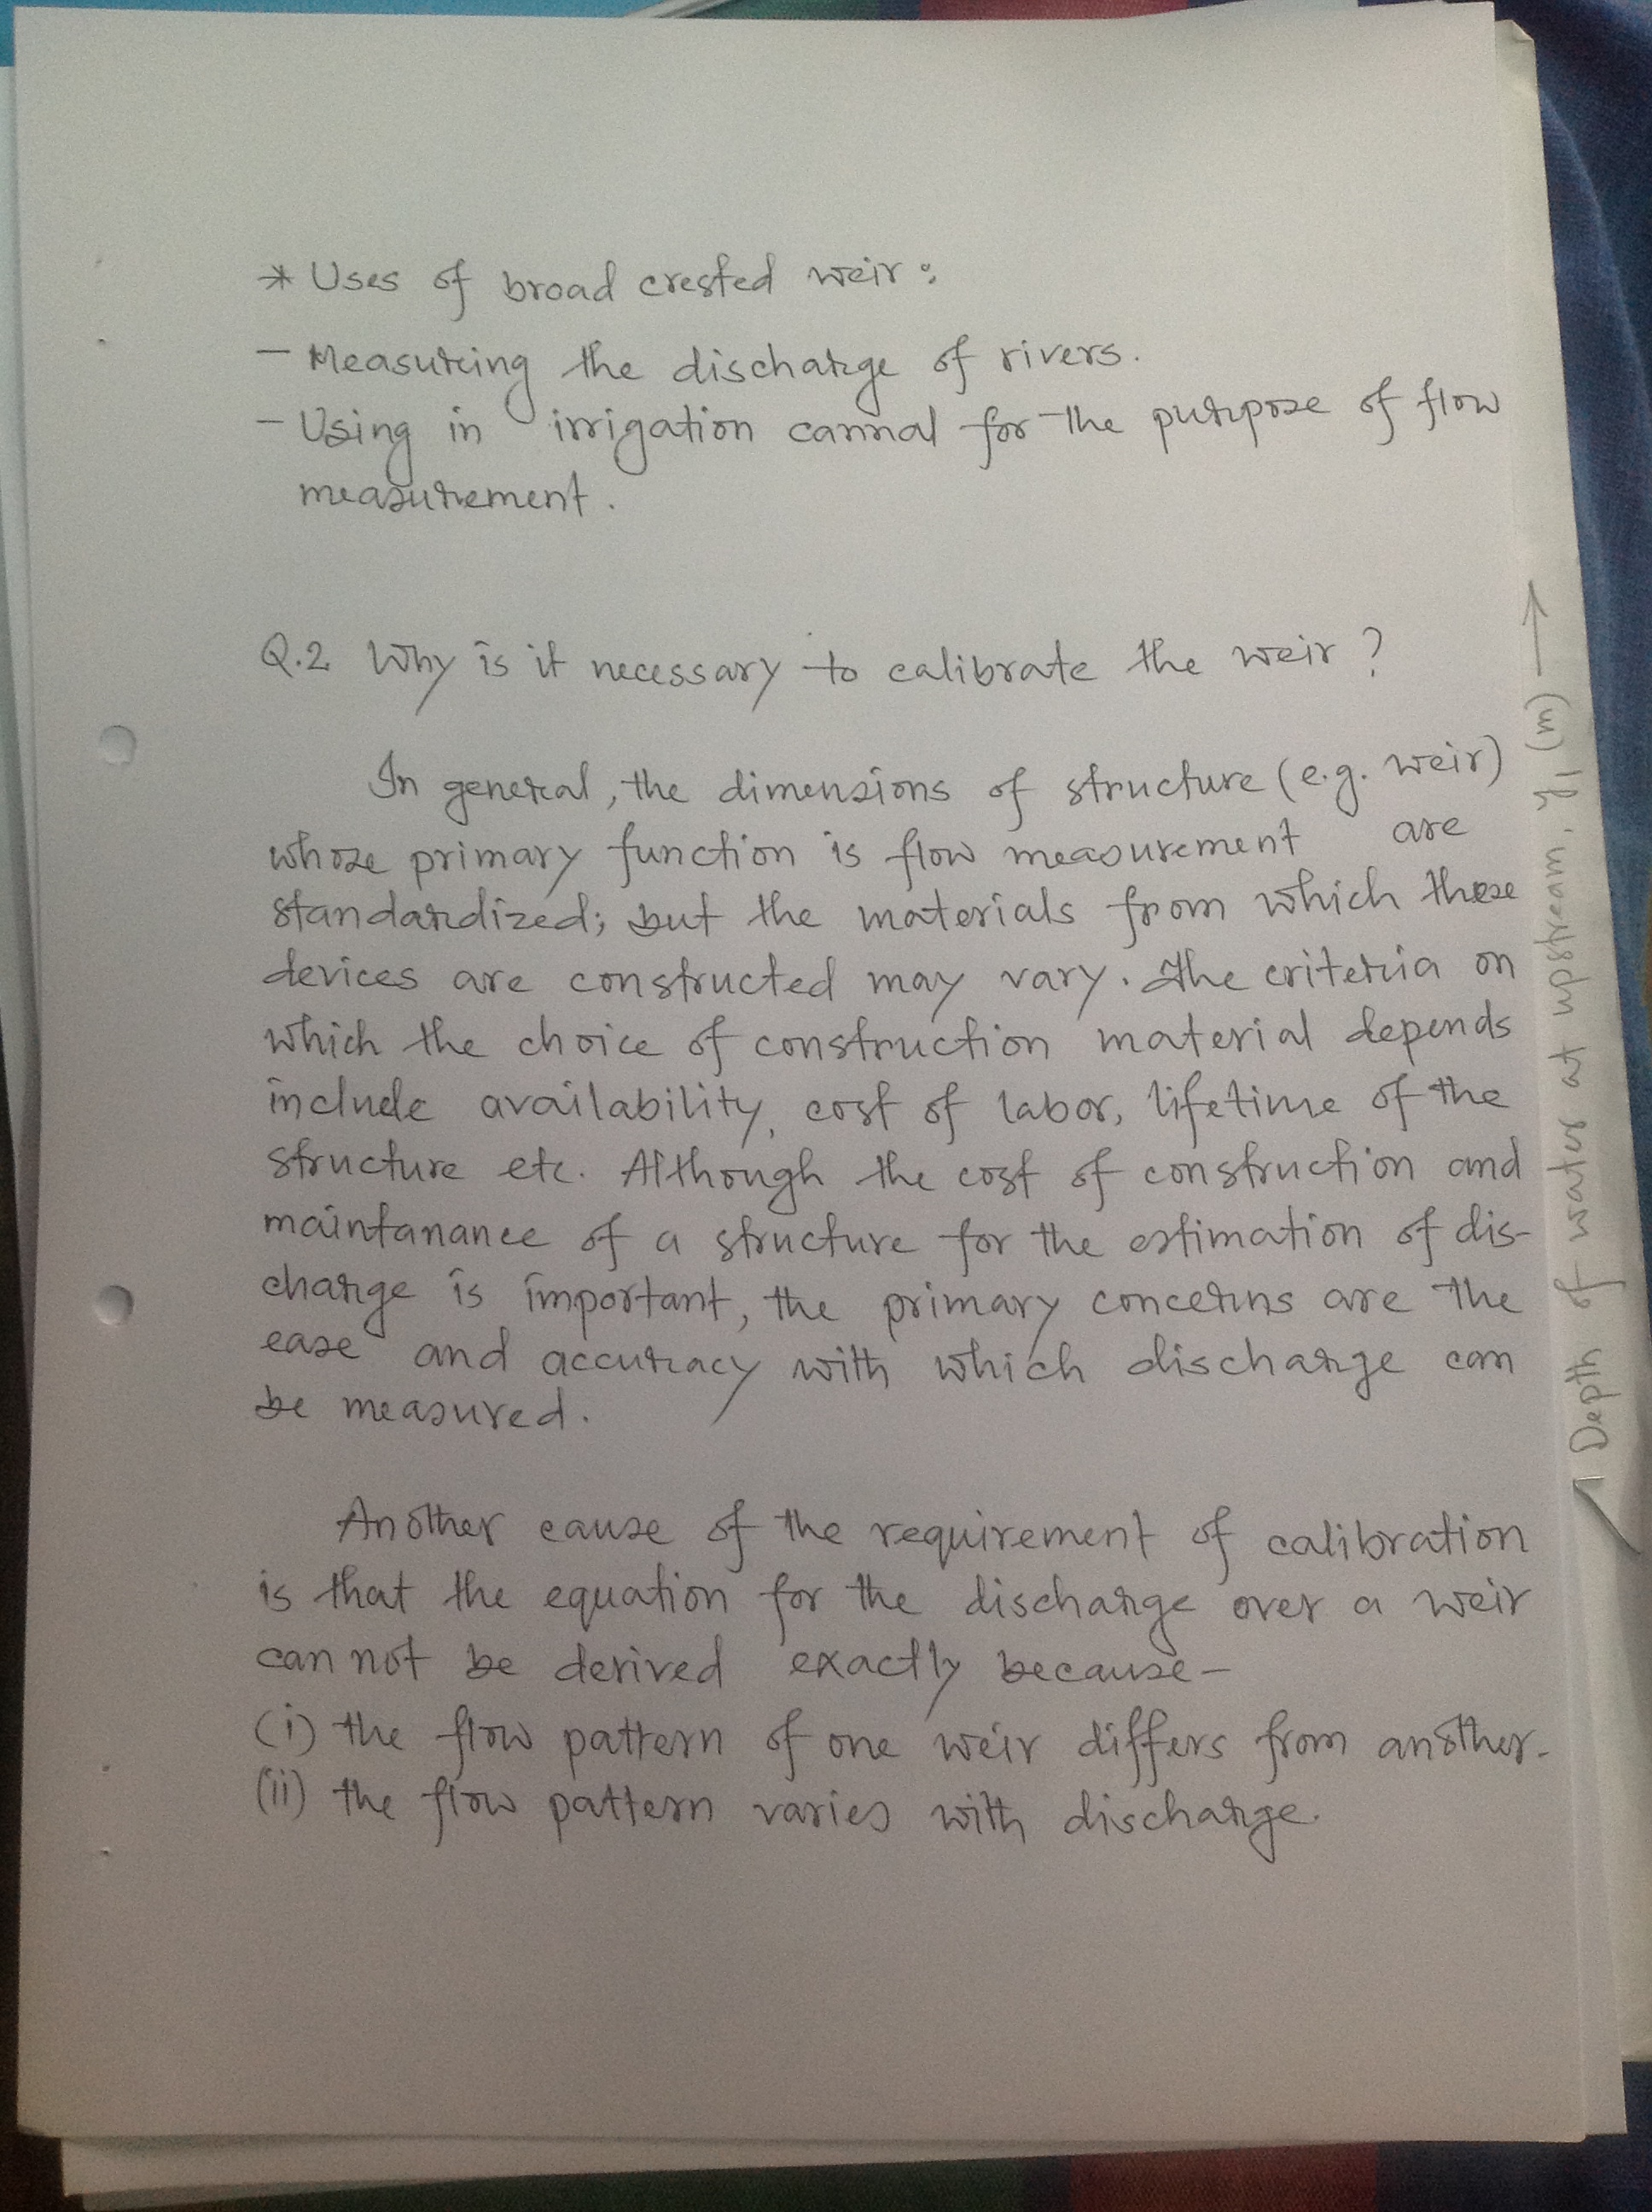 * Uses of broad crested weir :
- Measuring the discharge of rivers.
- Using in irrigation cannal for the purpose of flow
measurement.
Q.2 Why is it necessary to calibrate the weir ?
In general, the dimensions of structure (e.g. weir)
whose primary function is flow measurement are
standardized; but the materials from which these
devices are constructed may vary. The criteria on
which the choice of construction material depends
include availability, cost of labor, lifetime of the
structure etc. Although the cost of construction and
maintanance of a structure for the estimation of dis-
charge is important, the primary concerns are the
ease and accuracy with which discharge can
be measured.
Another cause of the requirement of calibration
is that the equation for the discharge over a weir
can not be derived exactly because-
(i) the flow pattern of one weir differs from another.
(ii) the flow pattern varies with discharge.
Depth of water at upstream, y1 (m) →